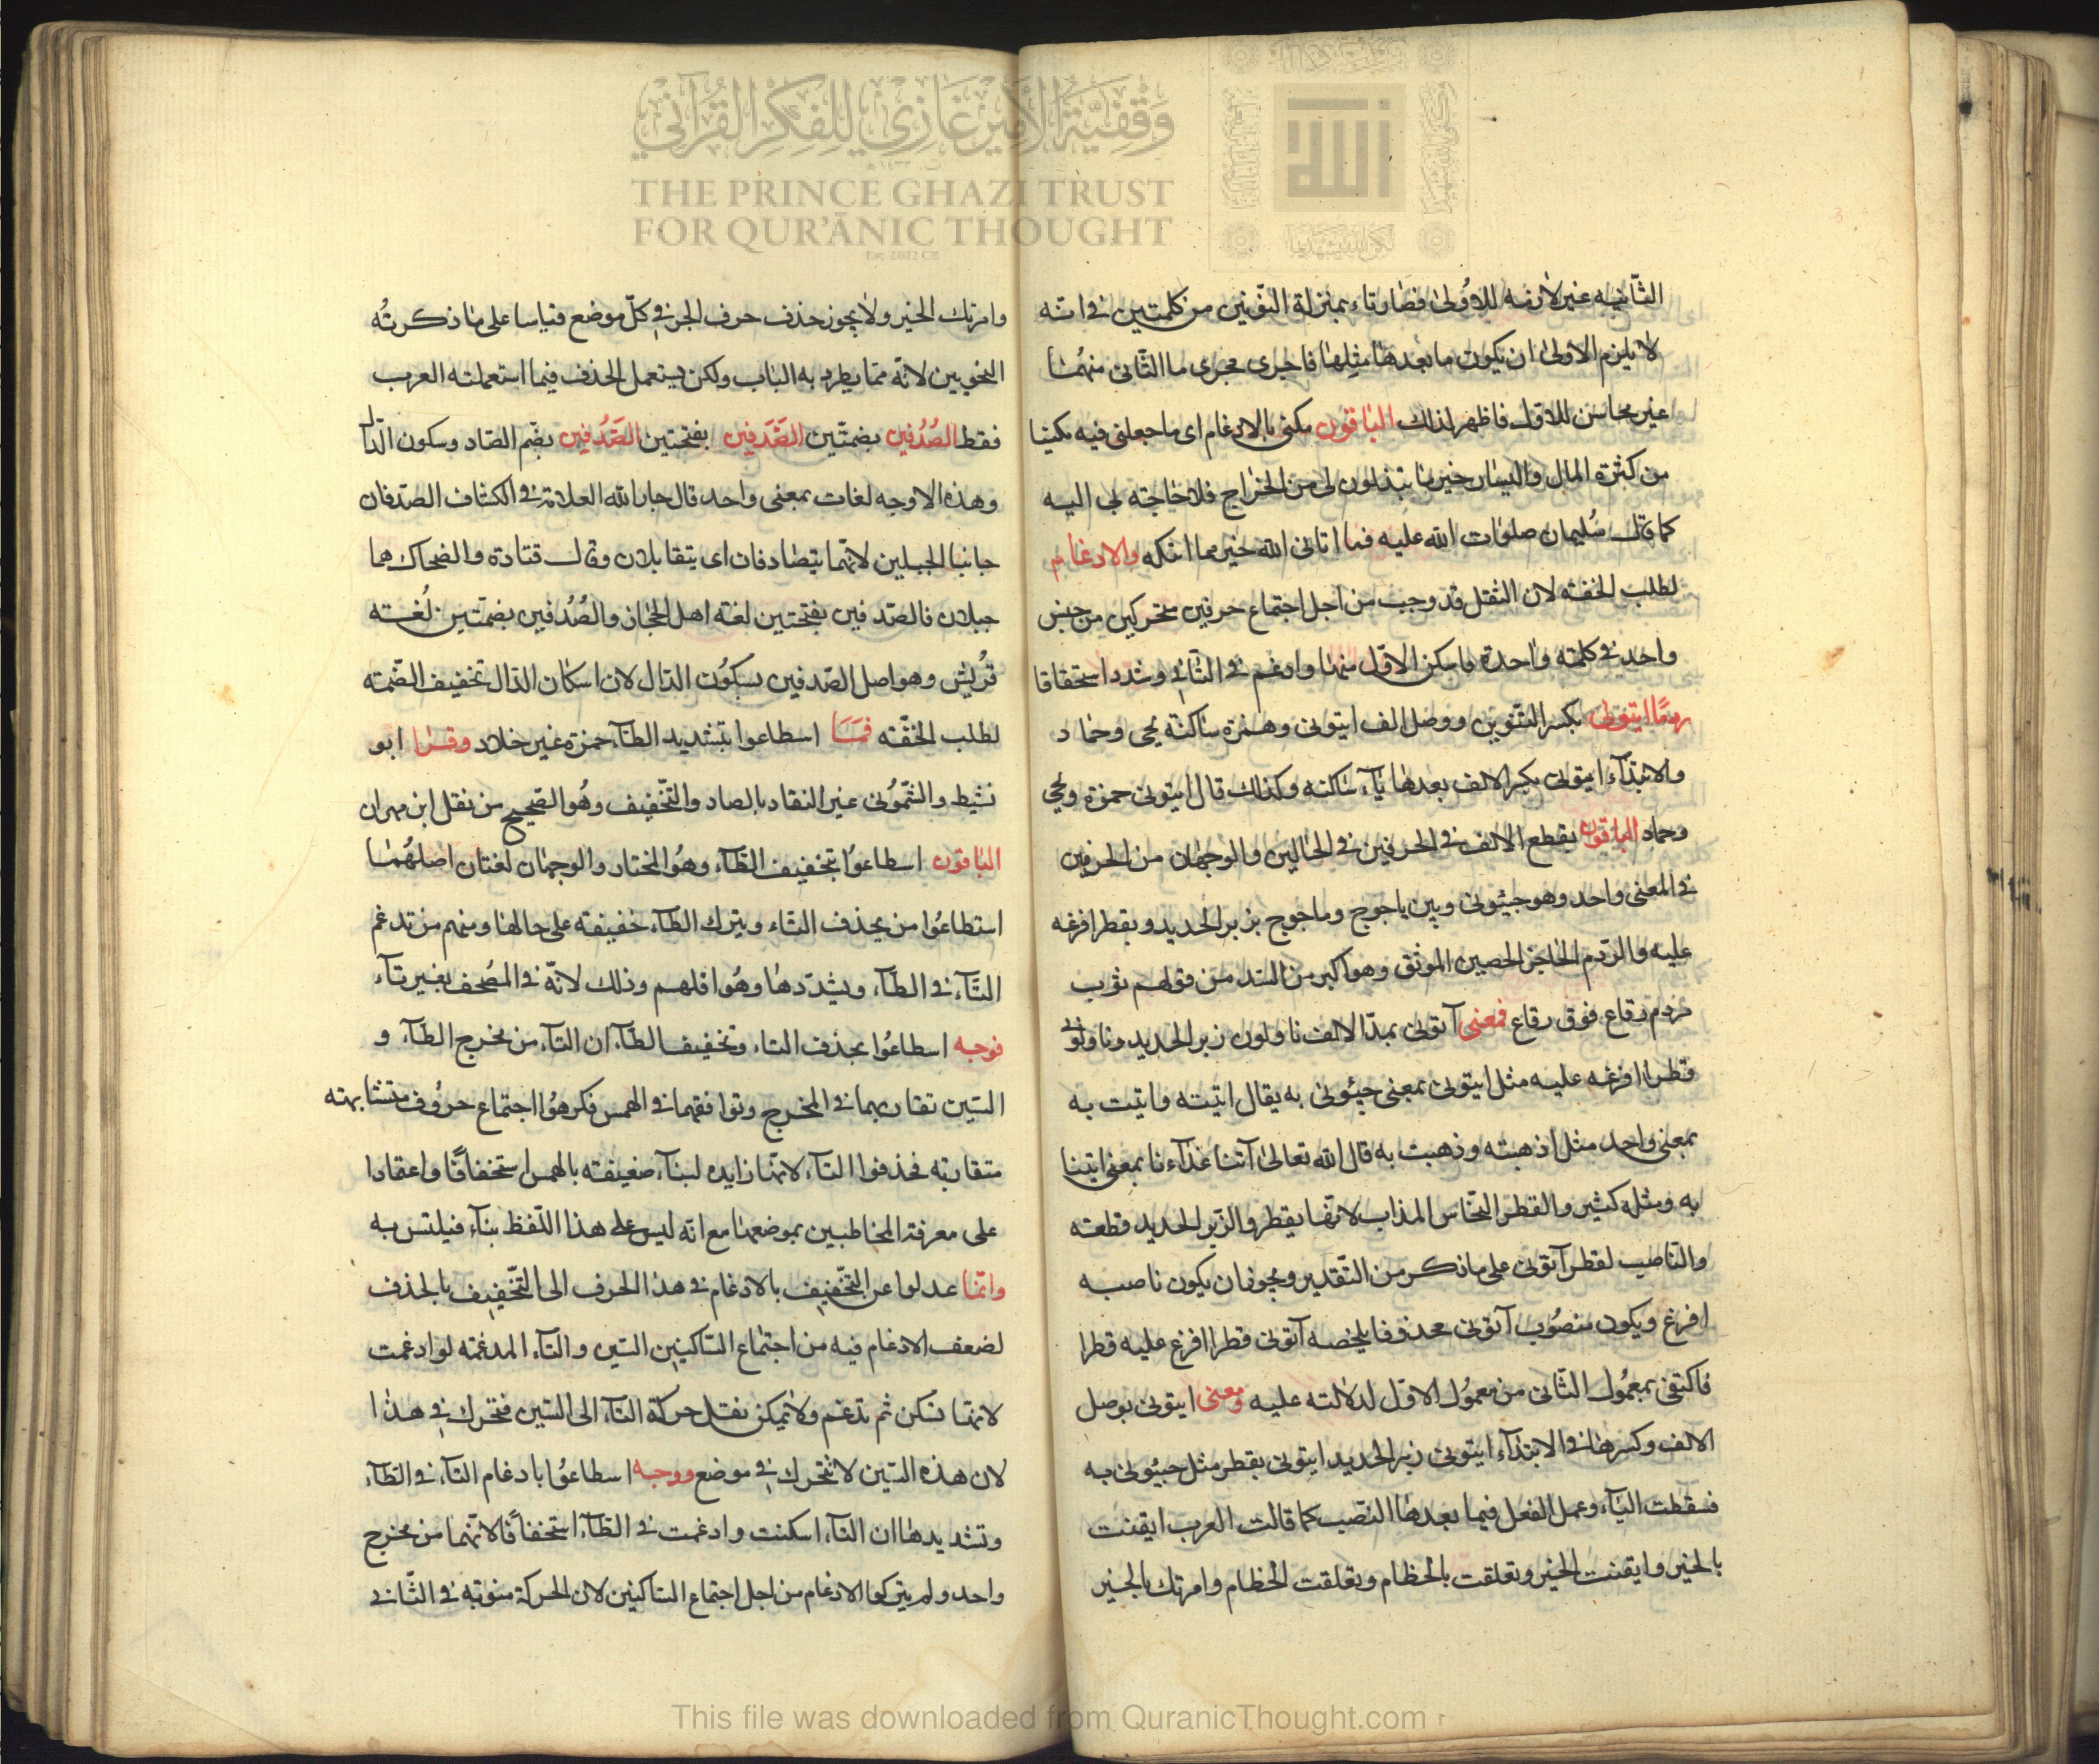 وقفية الأمير غازي للفكر القرآني
THE PRINCE GHAZI TRUST
FOR QUR'ĀNIC THOUGHT
Est. 2012 CE
الله
الثّانيه غير لازمه للاوُلىٰ فصٰارتاء بمنزلة النّونين من كلمتين فى انّه
لا يلزم الاولىٰ ان يكون ما بعدهٰا مثلهٰا فاجرى مجرى ما الثّانى منهُمٰا
غير مجاس للاول فاظهر لذلك الباقون مكنى بالادغام اى ما جعلنى فيه مكينا
من كثرة المال واليسٰار خير مٰا تبذلون لى من الخرٰاج فلا حٰاجته لى اليه
كما قٰال سُليمان صلوٰات الله عليه فما اتانى الله خير مما اتٰكم والادغام
لطلب الخفته لان الثقل قد وجب من اجل اجتماع حرفين متحركين من جنس
واحد فى كلمته وٰاحدة فاسكن الاوّل منهٰا وادغم فى الثّانى وشدد استحقاقا
ردمًا ايتونى بكسر التّنوين ووصل الف ايتونى وهمزه سٰاكنه يحيى وحمٰاد
والابتدٰاء ايتونى بكسر الالف بعدهٰا يٰاء سٰاكنه وكذلك قال ايتونى حمزة ويحيى
وحماد الباقون بقطع الالف فى الحرفين فى الحٰالين والوجهٰان من الحرفين
فى المعنى واحد وهو جيئونى وبين ياجوج وماجوج بزبر الحديد وبقطر افرغه
عليه والرّدم الحٰاجز الحصين الموثق وهو اكبر من السّد من قولهم ثوب
مردم رقاع فوق رقاع فمعنى آتونى بمدّ الالف ناولون زبر الحديد وناولونى
قطرا افرغه عليه مثل ايتونى بمعنى جيئونى به يقال اتيته واتيت به
بمعنى واحد مثل اذهبته وذهبت به قال الله تعالىٰ آتنا غدٰاءنا بمعنى ايتنا
به ومثله كثير والقطر النّحاس المذاب لانّهٰا يقطر والزّبر الحديد قطعته
والنّاصب لقطر آتونى على ماذكر من التّقدير ويجوز ان يكون ناصبه
افرغ ويكون منصُوب آتونى محذوفا يلخصه آتونى قطرا افرغ عليه قطرا
فاكتفى بمعمُول الثّانى من معمُول الاوّل لدلالته عليه ومعنى ايتونى بوصل
الالف وكسرهٰا فى الابتدٰاء ايتونى زبر الحديد ايتونى بقطر مثل جيئونى به
فسقطت اليٰاء وعمل الفعل فيما بعدهٰا النّصب كما قالت العرب ايقنت
بالخير وايقنت الخير وتعلقت بالحظام وتعلقت الحظام وامرتك بالخير
وامرتك الخير ولا يجوز حذف حرف الجر فى كلّ موضع قياسا على مٰا ذكرتُه
النحويين لانّه ممّا يطرد به البٰاب ولكن يستعمل الحذف فيما استعملته العرب
فقط الصُدُفين بضمتّين الصَّدَفين بفتحتين الصُّدْفين بضّم الصّاد وسكون الدّال
وهذه الاوجه لغات بمعنى واحد قال جار الله العلامة فى الكشاف الصّدفان
جانبا الجبلين لانّهما يتصٰادفان اى يتقابلان وقٰال قتادة والضحاك هما
جبلان فالصّدفين بفتحتين لغة اهل الحجٰاز والصُّدُفين بضمّتين لُغته
قُريش وهو اصل الصّدفين بسكوُن الدّال لان اسكان الدّال تخفيف الضّمته
لطلب الخفّته فمَا اسطاعوا بتشديد الطّاء حمزة غير خلاد وقرٰا ابو
نشيط والشّموُنى عن النقاد بالصاد والتّخفيف وهُو الصّحيح من نقل ابن مهران
البٰاقون اسطاعوُا بتخفيف الطّاء وهُو المختار والوجهٰان لغتان اصلهُمٰا
استطاعوُا من يحذف التٰاء ويترك الطّاء خفيفته على حالهٰا ومنهم من تدغم
التّاء فى الطّاء ويشدّدهٰا وهُو اقلهم وذلك لانّه فى المصُحف بغير تٰاء
فوجه اسطاعوُا بحذف التاء وتخفيف الطّاء ان التّاء من مخرج الطّاء و
السّين تقاربهما فى المخرج وتوافقهما فى الهمس فكرهُوا اجتماع حروُف متشابهته
متقاربة فحذفوا التّاء لانّها زايده لبنٰاء ضعيفته بالهمس استخفافًا واعقادا
على معرفة المخاطبين بموضعهٰا مع انّه ليس على هذا اللّفظ بنٰاء فيلتس به
وانّما عدلوا عن التّخفيف بالادغام فى هذا الحرف الى التّخفيف بالحذف
لضعف الادغام فيه من اجتمٰاع السّاكنين السّين والتّاء المدغمته لو ادغمت
لانهٰا تسكن ثم تدغم ولا يمكن نقل حركة التّاء الى السّين فتحرك فى هذٰا
لان هذه السّين لا تتحرك فى موضع ووجه اسطاعوُا بادغام التّاء فى الطّاء
وتشديدهٰا ان التّاء اسكنت وادغمت فى الطّاء استخفافًا لانّهما من مخرج
واحد ولم يتركوا الادغام من اجل اجتماع السّاكنين لان الحركة منوته فى الثّانى
This file was downloaded from QuranicThought.com